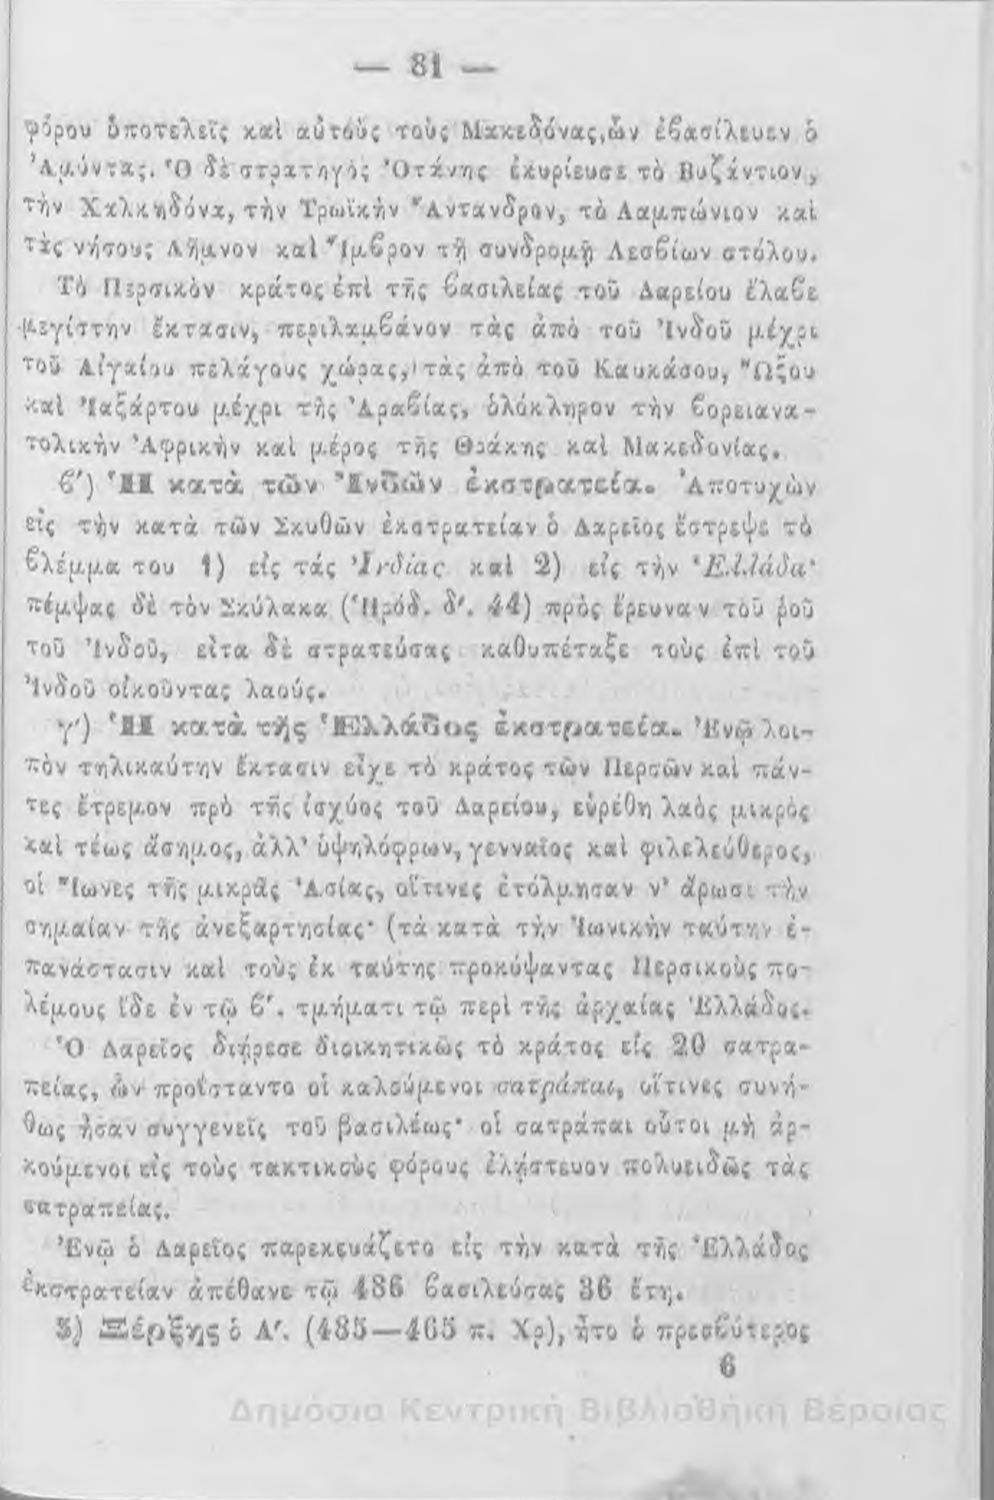 — 81 —
φόρου ὑποτελεῖς καὶ αὐτοὺς τοὺς Μακεδόνας, ὧν ἐϐασίλευεν ὁ
Ἀμύντας. Ὁ δὲ στρατηγὸς Ὀτάνης ἐκυρίευσε τὸ Βυζάντιον,
τὴν Χαλκηδόνα, τὴν Τρωϊκὴν Ἄντανδρον, τὸ Λαμπώνιον καὶ
τὰς νήσους Λῆμνον καὶ Ἴμϐρον τῇ συνδρομῇ Λεσϐίων στόλου.
Τὸ Περσικὸν κράτος ἐπὶ τῆς ϐασιλείας τοῦ Δαρείου ἔλαϐε
μεγίστην ἔκτασιν, περιλαμϐάνον τὰς ἀπὸ τοῦ Ἰνδοῦ μέχρι
τοῦ Αἰγαίου πελάγους χώρας, τὰς ἀπὸ τοῦ Καυκάσου, Ὤξου
καὶ Ἰαξάρτου μέχρι τῆς Ἀραϐίας, ὁλόκληρον τὴν ϐορειανα-
τολικὴν Ἀφρικὴν καὶ μέρος τῆς Θράκης καὶ Μακεδονίας.
ϐ′) Ἡ κατὰ τῶν Ἰνδῶν ἐκστρατεία. Ἀποτυχὼν
εἰς τὴν κατὰ τῶν Σκυθῶν ἐκστρατείαν ὁ Δαρεῖος ἔστρεψε τὸ
ϐλέμμα του 1) εἰς τάς Ἰνδίας καὶ 2) εἰς τὴν Ἑλλάδα·
πέμψας δὲ τὸν Σκύλακα (Ἡρόδ. δ′. 44) πρὸς ἔρευναν τοῦ ῥοῦ
τοῦ Ἰνδοῦ, εἶτα δὲ στρατεύσας καθυπέταξε τοὺς ἐπὶ τοῦ
Ἰνδοῦ οἰκοῦντας λαούς.
γ′) Ἡ κατὰ τῆς Ἑλλάδος ἐκστρατεία. Ἐνῷ λοι-
πὸν τηλικαύτην ἔκτασιν εἶχε τὸ κράτος τῶν Περσῶν καὶ πάν-
τες ἔτρεμον πρὸ τῆς ἰσχύος τοῦ Δαρείου, εὑρέθη λαὸς μικρὸς
καὶ τέως ἄσημος, ἀλλ’ ὑψηλόφρων, γενναῖος καὶ φιλελεύθερος,
οἱ Ἴωνες τῆς μικρᾶς Ἀσίας, οἵτινες ἐτόλμησαν ν’ ἄρωσι τὴν
σημαίαν τῆς ἀνεξαρτησίας· (τὰ κατὰ τὴν Ἰωνικὴν ταύτην ἐ-
πανάστασιν καὶ τοὺς ἐκ ταύτης προκύψαντας Περσικοὺς πο-
λέμους ἴδε ἐν τῷ ϐ′. τμήματι τῷ περὶ τῆς ἀρχαίας Ἑλλάδος.
Ὁ Δαρεῖος διῄρεσε διοικητικῶς τὸ κράτος εἰς 20 σατρα-
πείας, ὧν προΐσταντο οἱ καλούμενοι σατράπαι, οἵτινες συνή-
θως ἦσαν συγγενεῖς τοῦ βασιλέως· οἱ σατράπαι οὗτοι μὴ ἀρ-
κούμενοι εἰς τοὺς τακτικοὺς φόρους ἐλῄστευον πολυειδῶς τὰς
σατραπείας.
Ἐνῷ ὁ Δαρεῖος παρεκευάζετο εἰς τὴν κατὰ τῆς Ἑλλάδος
ἐκστρατείαν ἀπέθανε τῷ 486 ϐασιλεύσας 36 ἔτη.
5) Ξέρξης ὁ Α′. (485—465 π. Χρ), ἦτο ὁ πρεσϐύτερος
6
Δημόσια Κεντρική Βιβλιοθήκη Βέροιας